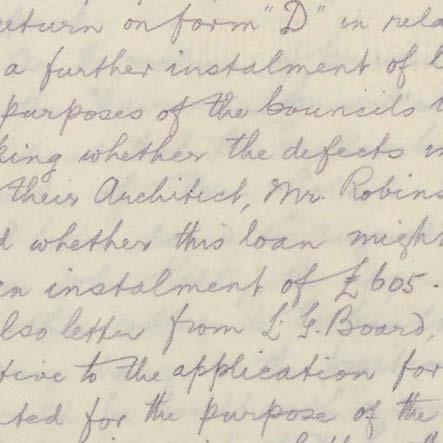 return on form "D" in rela
a further instalment of
purposes of the Councils
king whether the defects
their Architect, Mr. Robins
d whether this loan migh
en instalment of £605.
lso letter from L. G. Board,
tive to the application for
ted for the purpose of the